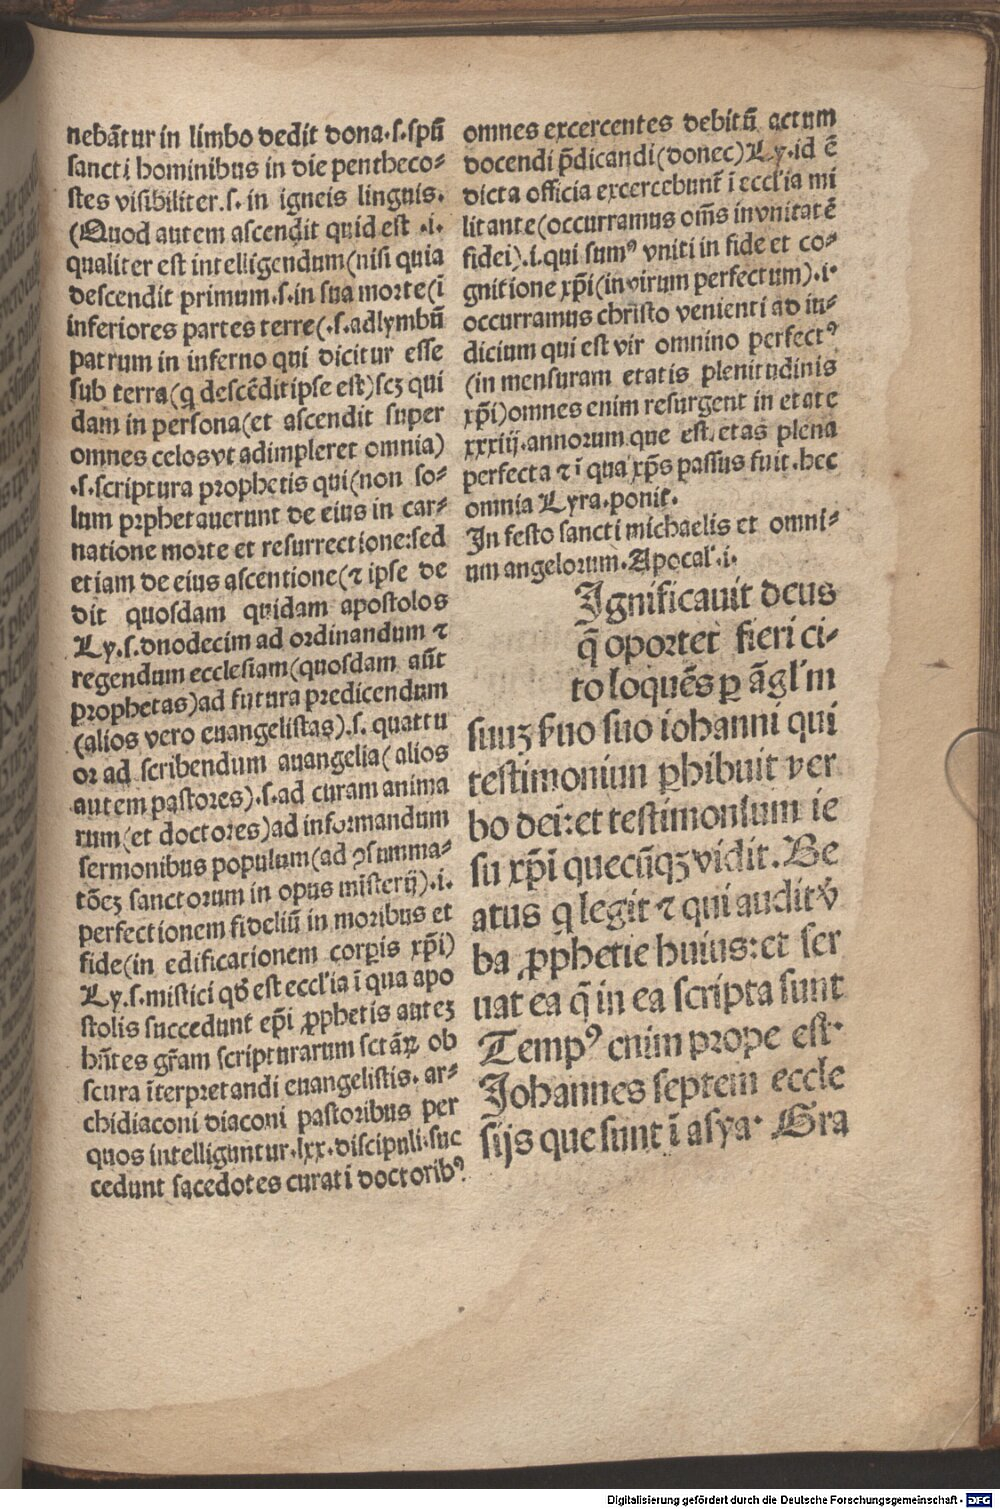 nebãtur in limbo dedit dona.s.spũ
sancti hominibus in die pentheco-
stes visibiliter.s. in igneis linguis.
(Quod autem ascendit quid est .i.
qualiter est intelligendum(nisi quia
descendit primum.s.in sua morte(ĩ
inferiores partes terre(.s.adlymbũ
patrum in inferno qui dicitur esse
sub terra(q descẽdit ipse est)scz qui
dam in persona(et ascendit super
omnes celos vt adimpleret omnia)
.s.scriptura prophetis qui(non so-
lum prphetauerunt de eius in car-
natione morte et resurrectione:sed
etiam de eius ascentione(⁊ ipse de
dit quosdam quidam apostolos
Ly.s.duodecim ad ordinandum ⁊
regendum ecclesiam(quosdam aũt
prophetas)ad futura predicendum
(alios vero euangelistas).s. quattu
or ad scribendum auangelia(alios
autem pastores).s.ad curam anima
rum(et doctores)ad informandum
sermonibus populum(ad ꝯsumma-
tõez sanctorum in opus misterij).i.
perfectionem fideliũ in moribus et
fide(in edificationem corpis xp̃i)
Ly.s.mistici qđ est eccl'ia ĩ qua apo
stolis succedunt ep̃i ꝓphetis autez
hñtes gr̃am scripturarum sctãꝝ ob
scura ĩterpretandi euangelistis. ar-
chidiaconi diaconi pastoribus per
quos intelliguntur.lxx.discipuli.suc
cedunt sacedotes curati doctoribꝰ
omnes excercentes debitũ actum
docendi p̃dicandi(donec)Ly.id ẽ
dicta officia excercebunt̃ ĩ eccl'ia mi
litante(occurramus om̃s in vnitatẽ
fidei).i.qui sumꝰ vniti in fide et co-
gnitione xp̃i(in virum perfectum).i.
occurramus christo venienti ad iu-
dicium qui est vir omnino perfectꝰ
(in mensuram etatis plenitudinis
xp̃i)omnes enim resurgent in etate
xxxiij.annorum que est etas plena
perfecta ⁊ ĩ qua xp̃s passus fuit.hec
omnia Lyra.ponit.
In festo sancti michaelis et omni-
um angelorum.Apocal'.i.
Ignificauit deus
q̃ oportet fieri ci-
to loquẽs ꝑ ãgl'm
suuʒ s̃uo suo iohanni qui
testimoniun ꝑhibuit ver
bo dei:et testimonium ie
su xp̃i quecũqʒ vidit. Be
atus q legit ⁊ qui audit v̾
ba ꝓphetie huius:et ser
uat ea q̃ in ea scripta sunt
Tempꝰ enim prope est.
Johannes septem eccle
sijs que sunt ĩ asya. Gra
Digitalisierung gefördert durch die Deutsche Forschungsgemeinschaft - DFG